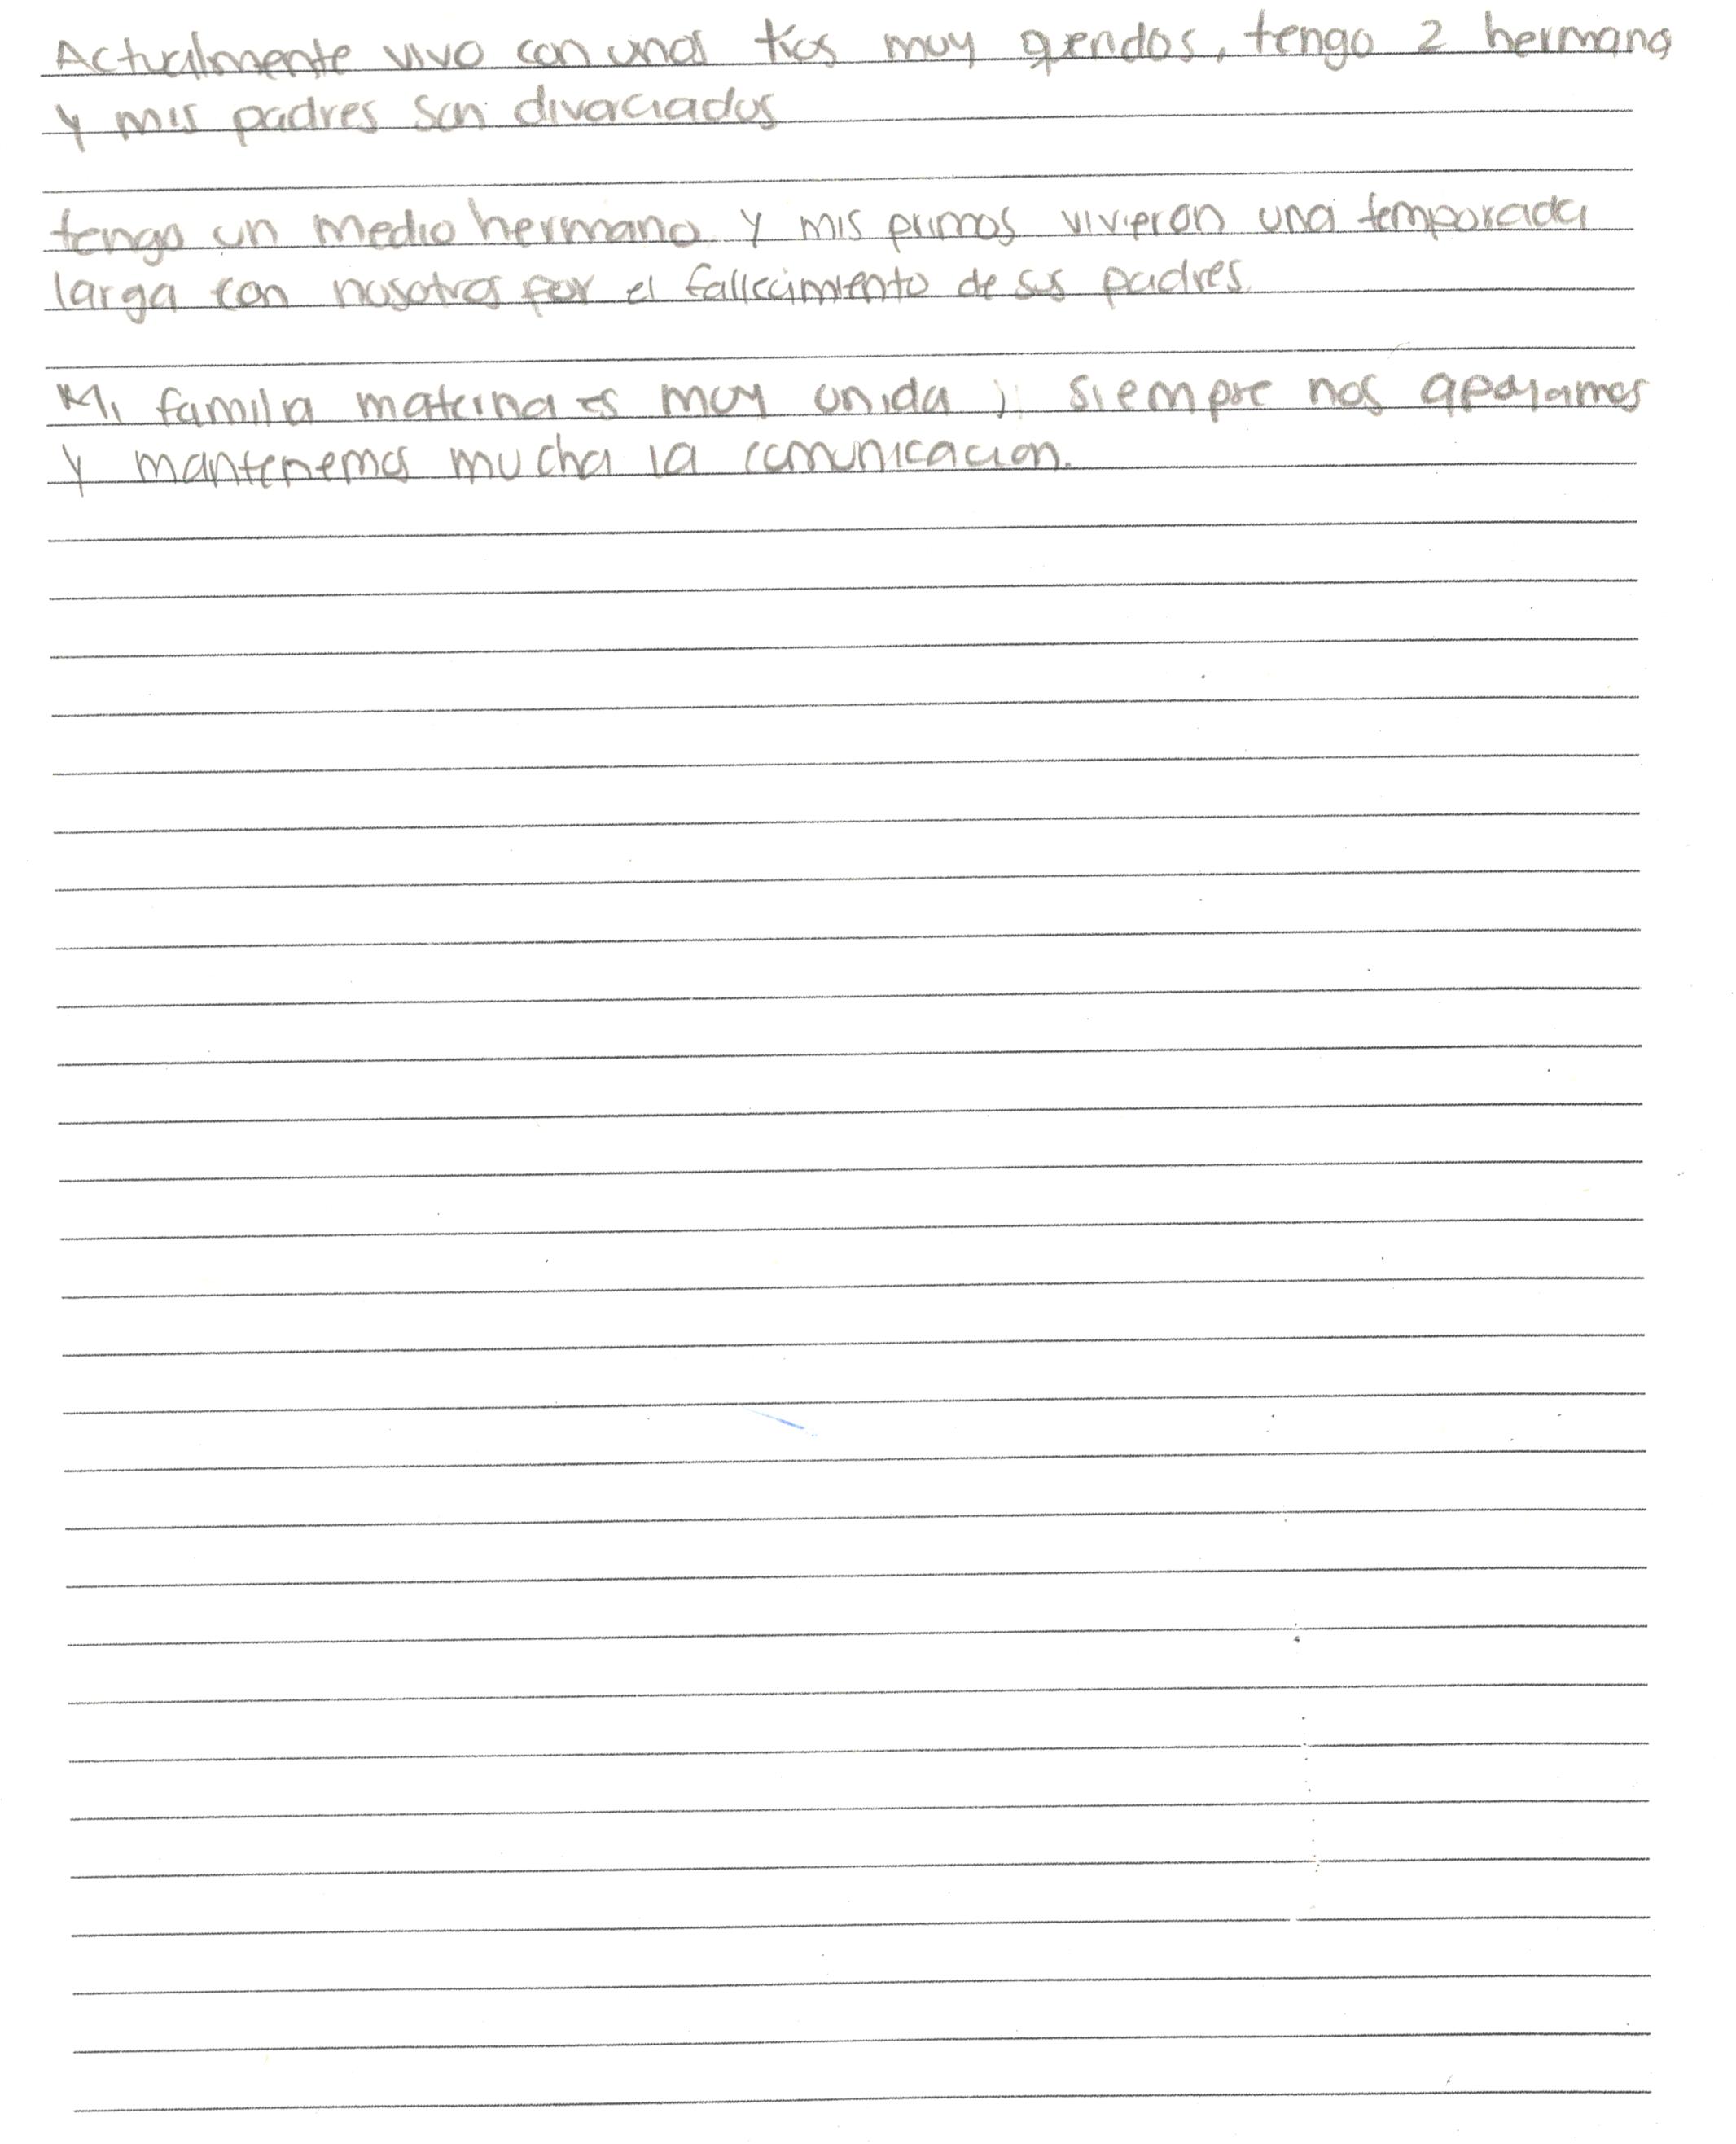 Actualmente vivo con unos tíos muy qeridos, tengo 2 hermanos
y mis padres son divorciados
tengo un medio hermano y mis primos vivieron una temporada
larga con nosotros por el fallecimiento de sus padres.
Mi familia materna es muy unida ; siempre nos apoyamos
y mantenemos mucha la comunicacion.